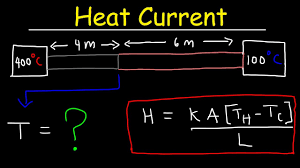 Heat Current
4 m 6 m
400°C 100°C
T = ?
H = KA[T_H - T_C]
L